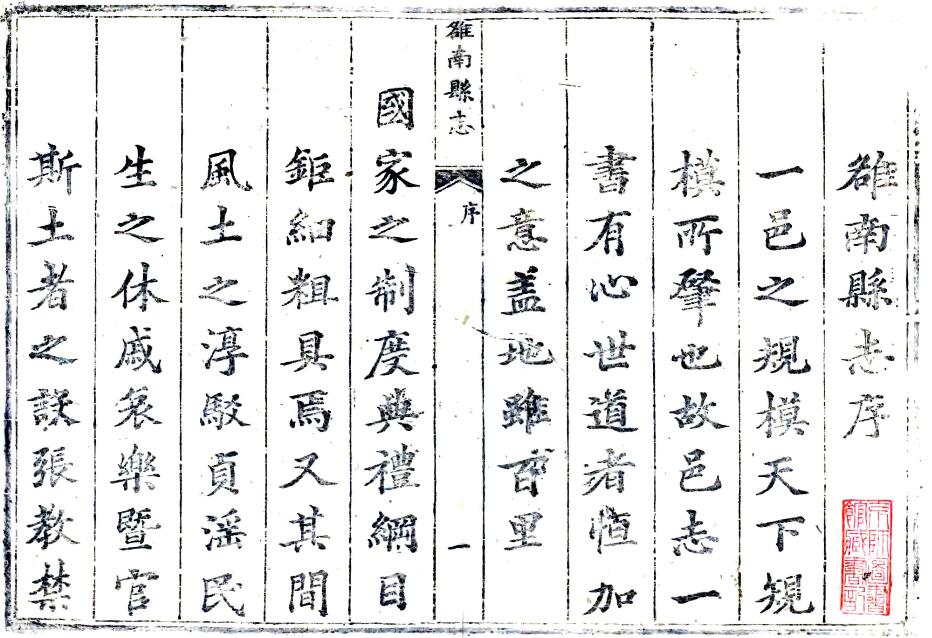 雒南縣志序
一邑之規模天下規
模所肈也故邑志一
書有心世道者恒加
之意盖地雖百里
雒南縣志
序
一
國家之制度典禮綱目
鉅細粗具焉又其間
風土之淳駁貞滛民
生之休戚哀樂暨官
斯土者之設張教禁